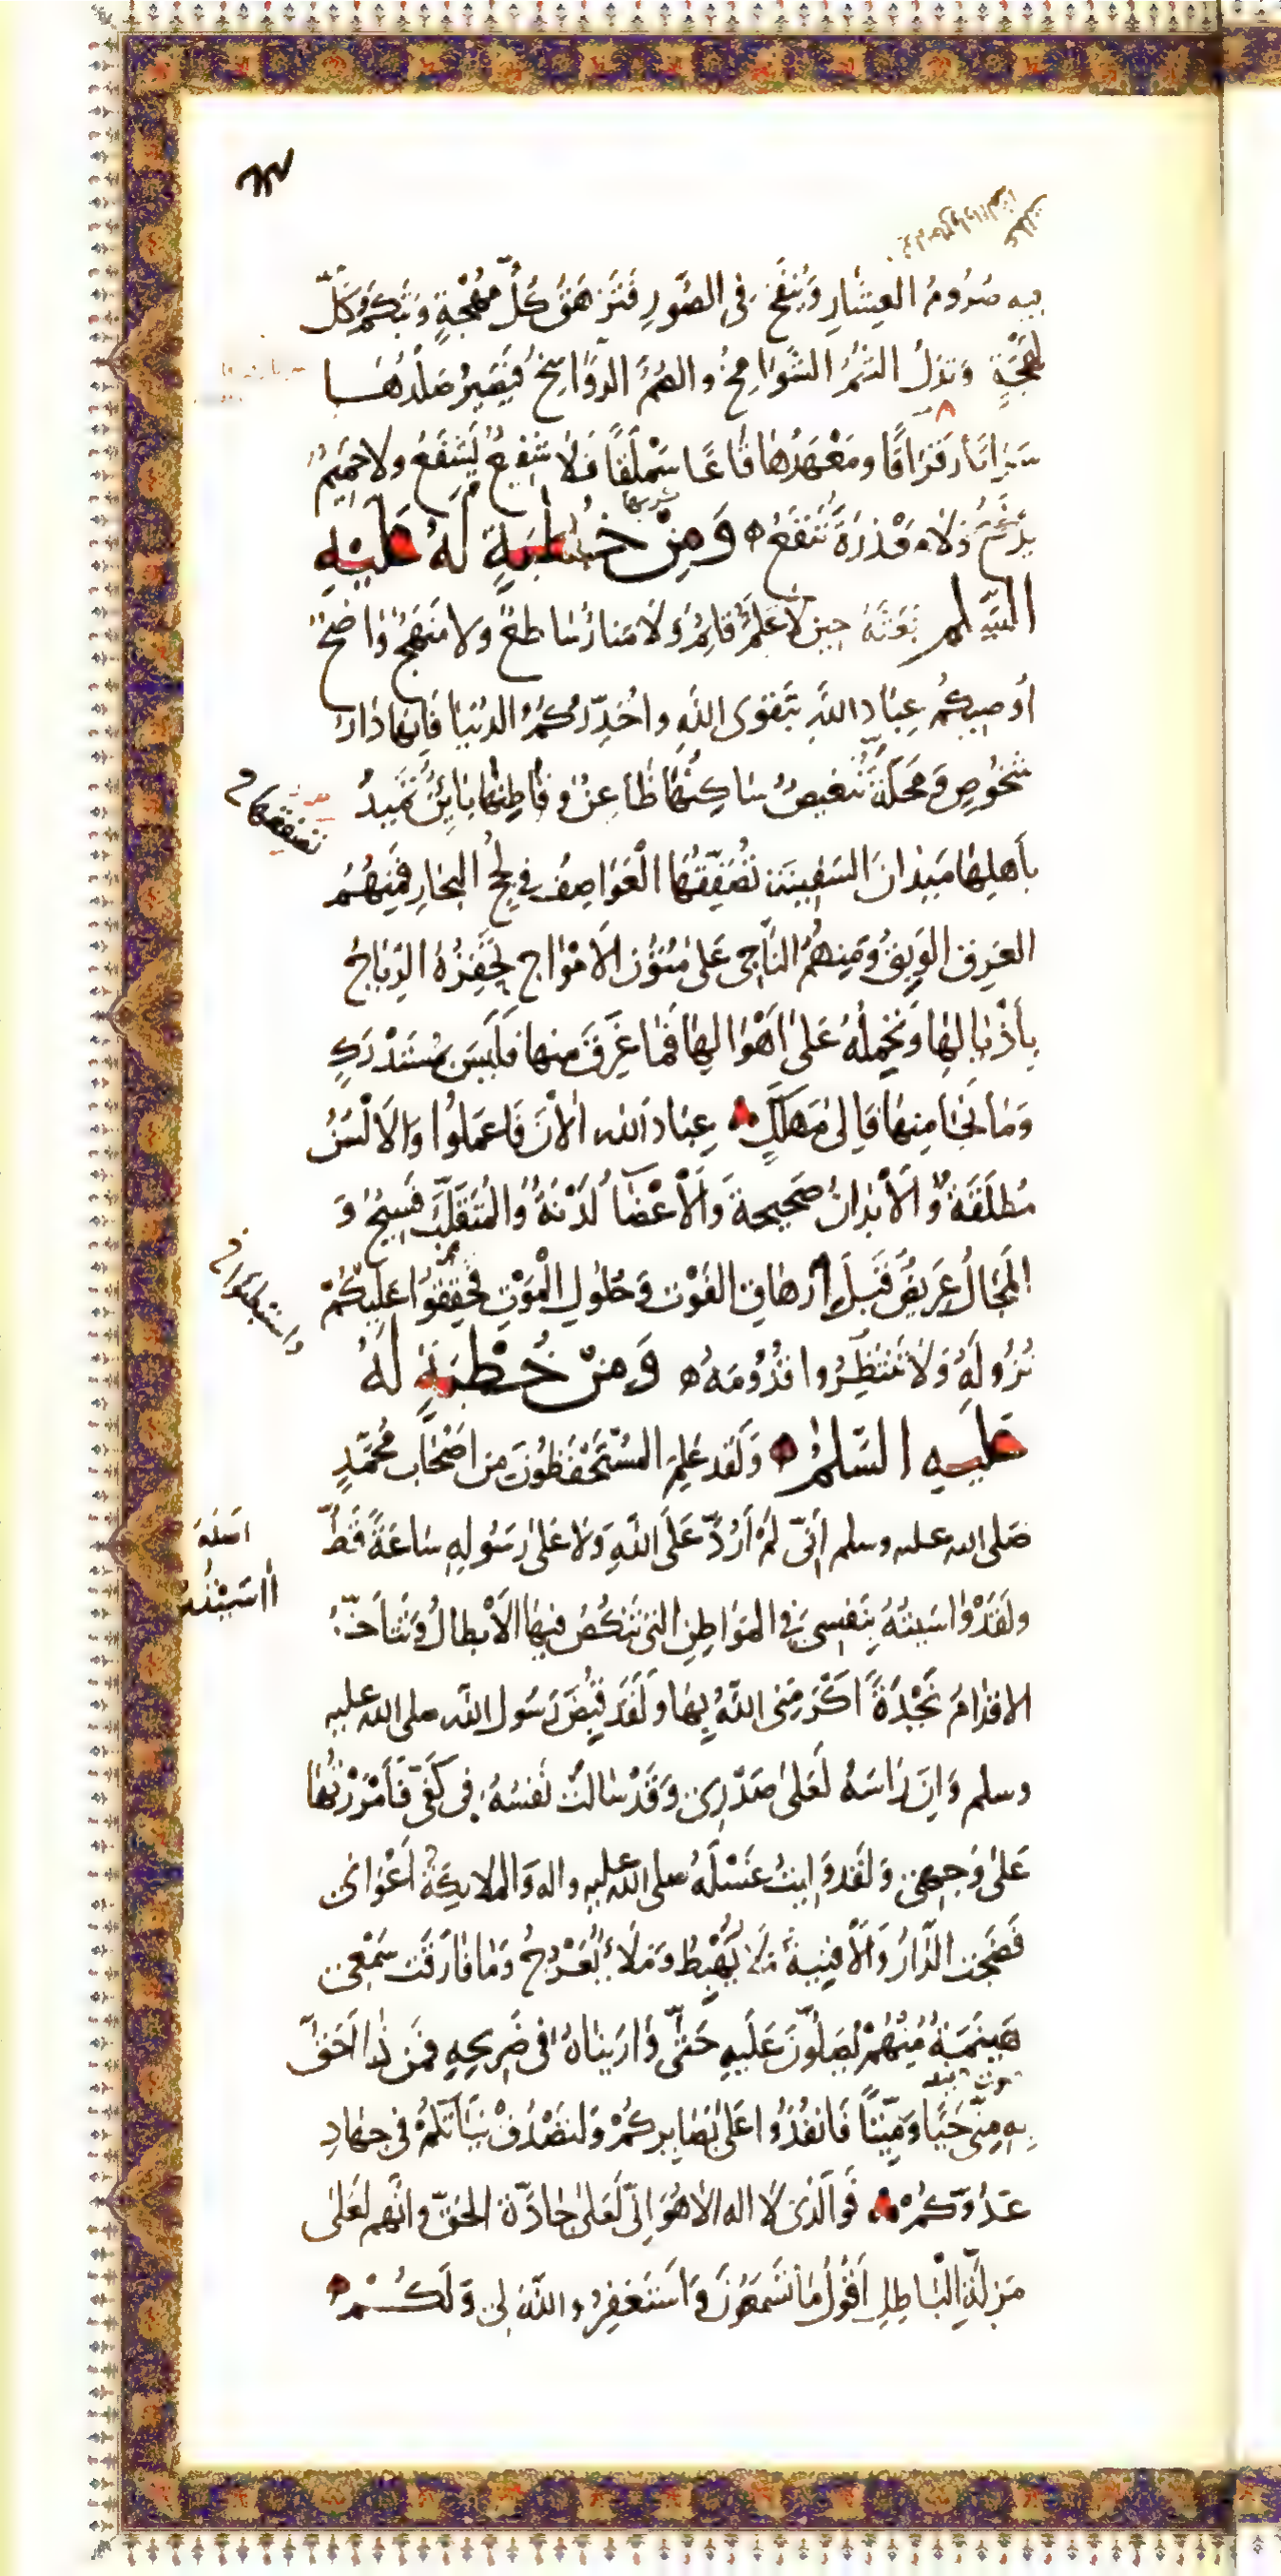 فيه صُرُومُ العِشَارِ وَيُنْفَخُ فى الصُّورِ فَتَزْهَقُ كُلُّ مُهْجَةٍ وَتَبْكَمُ كُلُّ
لَهْجَةٍ وَتَذِلُّ الشُّمُّ الشَّوَامِخُ والصُّمُّ الرَّوَاسِخُ فَيَصِيرُ صَلْدُهَا
سَرَابًا رَقْرَاقًا ومَعْهَدُهَا قَاعًا سَمْلَقًا فَلَا شَفِيعٌ يَشْفَعُ ولا حَمِيمٌ
يَدْفَعُ وَلَا مَعْذِرَةٌ تَنْفَعُ ه وَمِنْ خُطْبَةٍ لَهُ عَلَيْهِ
السَّلم بَعَثَهُ حِينَ لَا عَلَمٌ قَائِمٌ وَلَا مَنَارٌ سَاطِعٌ ولا مَنْهَجٌ وَاضِحٌ
أُوصِيكُم عِبَادَ اللهِ بِتَقْوَى اللهِ واُحَذِّرُكُمُ الدُّنْيَا فَإِنَّهَا دَارُ
شُخُوصٍ وَمَحَلَّةُ تَنْغِيصٍ سَاكِنُهَا ظَاعِنٌ وَقَاطِنُهَا بَائِنٌ تَمِيدُ
بأَهلِهَا مَيَدَانَ السَّفِينَةِ تُصَفِّقُهَا الْعَوَاصِفُ فى لُجَجِ البِحَارِ فَمِنْهُمُ
الغَرِقُ الوَبِقُ وَمِنهُمُ النَّاجِى عَلَى مُتُونِ الأَمْوَاجِ تَحْفِزُهُ الرِّيَاحُ
بِأَذْيَالِهَا وَتَحْمِلُهُ عَلَى أَهْوَالِهَا فَمَا غَرِقَ مِنها فَلَيسَ بمُسْتَدْرَكٍ
وَمَا نَجَا مِنهَا فَإِلى مَهْلَكٍ عِبَادَ الله الْآنَ فَاعمَلُوا وَالْأَلْسُنُ
مُطْلَقَةٌ وَالْأَبْدَانُ صَحِيحة وَالْأَعْضَاءُ لَدْنَةٌ وَالْمُتَقَلَّبُ فَسِيحٌ وَ
الْمَجَالُ عَرِيضٌ قَبْلَ إِرْهَاقِ الفَوْتِ وَحُلُولِ الْمَوْتِ فَحَقِّقُوا عَلَيْكُمْ
نُزُولَهُ وَلَا تَنْتَظِرُوا قُدُومَهُ ه وَمِنْ خُطْبَةٍ لَهُ
عَلَيهِ السَّلمُ وَلَقَد عَلِمَ المُسْتَحْفَظُونَ مِن أَصْحَابِ مُحَمَّدٍ
صَلى الله عليه وسلم أَنِّى لَمْ أَرُدَّ عَلَى اللهِ وَلَا عَلَى رَسُولِهِ سَاعَةً قَطُّ
ولَقَدْ وَاسَيتُهُ بِنَفسِى فِى المَوَاطِنِ الَّتى تَنْكُصُ فِيهَا الْأَبطَالُ وَتَتَأَخَّرُ
الاقدَامُ نَجْدَةً اَكْرَمَنِى اللهُ بِهَا وَلَقَد قُبِضَ رَسُول الله صلى الله عليه
وسلم وَإِنَّ رَاسَهُ لَعَلى صَدْرِى وَقَدْ سَالَتْ نَفسُهُ فى كَفِّى فَأَمْرَرْتُهَا
عَلَى وَجهِى وَلَقَد وَلِيتُ غَسْلَهُ صلى الله عليه واله وَالملائِكَةُ أَعْوَانى
فَضَجَّتِ الدَّارُ وَالأَفنِيَةُ مَلَأٌ يَهْبِطُ وَمَلَأٌ يَعْرُجُ وَمَا فَارَقَت سَمْعِى
هَينَمَةٌ مِنْهُمْ يُصَلُّونَ عَلَيهِ حَتَّى وَارَيناهُ فى ضَرِيحِهِ فَمَن ذَا أَحَقُّ
بِهِ مِنِّى حَيًّا وَمَيِّتًا فَانفُذُوا عَلَى بَصَايِرِكُمْ وَلتَصْدُقْ نِيَّاتُكُمْ فى جِهَادِ
عَدُوِّكُمْ فَوَالَّذى لَا اله الا هُوَ إِنِّى لَعَلى جَادَّةِ الحَقِّ وانَّهم لَعَلى
مَزَلَّةِ الْبَاطِلِ أَقُولُ مَا تَسْمَعُونَ وَاسْتَغفِرُ اللهَ لى وَلَكُمْ
تصفقها
اصله